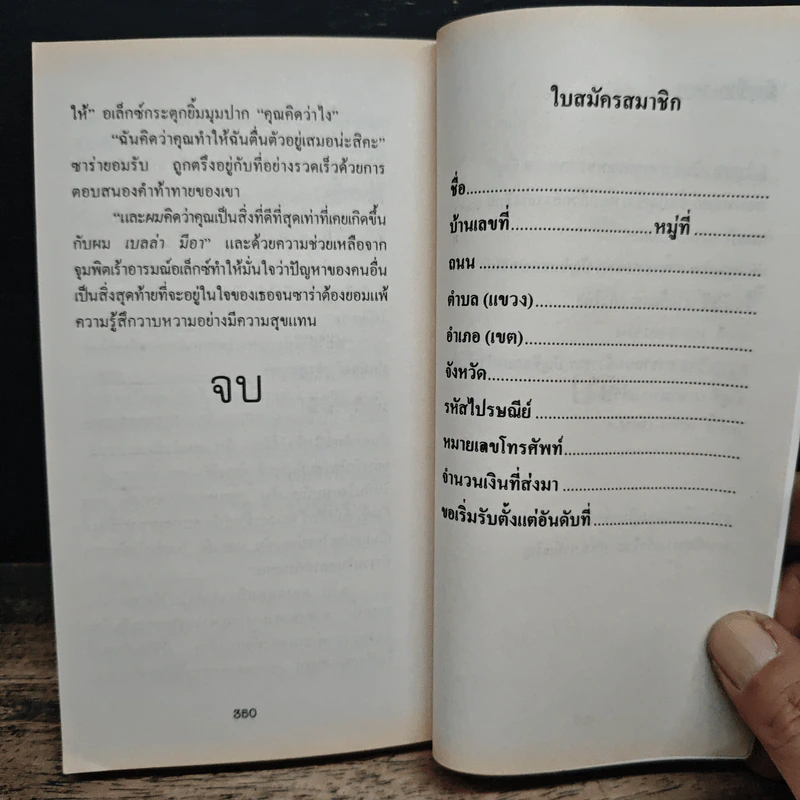 ให้” อเล็กซ์กระตุกยิ้มมุมปาก “คุณคิดว่าไง”
“ฉันคิดว่าคุณทำให้ฉันตื่นตัวอยู่เสมอน่ะสิคะ”
ซาร่ายอมรับ ถูกตรึงอยู่กับที่อย่างรวดเร็วด้วยการ
ตอบสนองคำท้าทายของเขา
“และผมคิดว่าคุณเป็นสิ่งที่ดีที่สุดเท่าที่เคยเกิดขึ้น
กับผม เบลล่า มีอา” และด้วยความช่วยเหลือจาก
จุมพิตเร้าอารมณ์อเล็กซ์ทำให้มั่นใจว่าปัญหาของคนอื่น
เป็นสิ่งสุดท้ายที่จะอยู่ในใจของเธอจนซาร่าต้องยอมแพ้
ความรู้สึกวาบหวามอย่างมีความสุขแทน
จบ
350
ใบสมัครสมาชิก
ชื่อ
บ้านเลขที่ หมู่ที่
ถนน
ตำบล (แขวง)
อำเภอ (เขต)
จังหวัด
รหัสไปรษณีย์
หมายเลขโทรศัพท์
จำนวนเงินที่ส่งมา
ขอเริ่มรับตั้งแต่อันดับที่